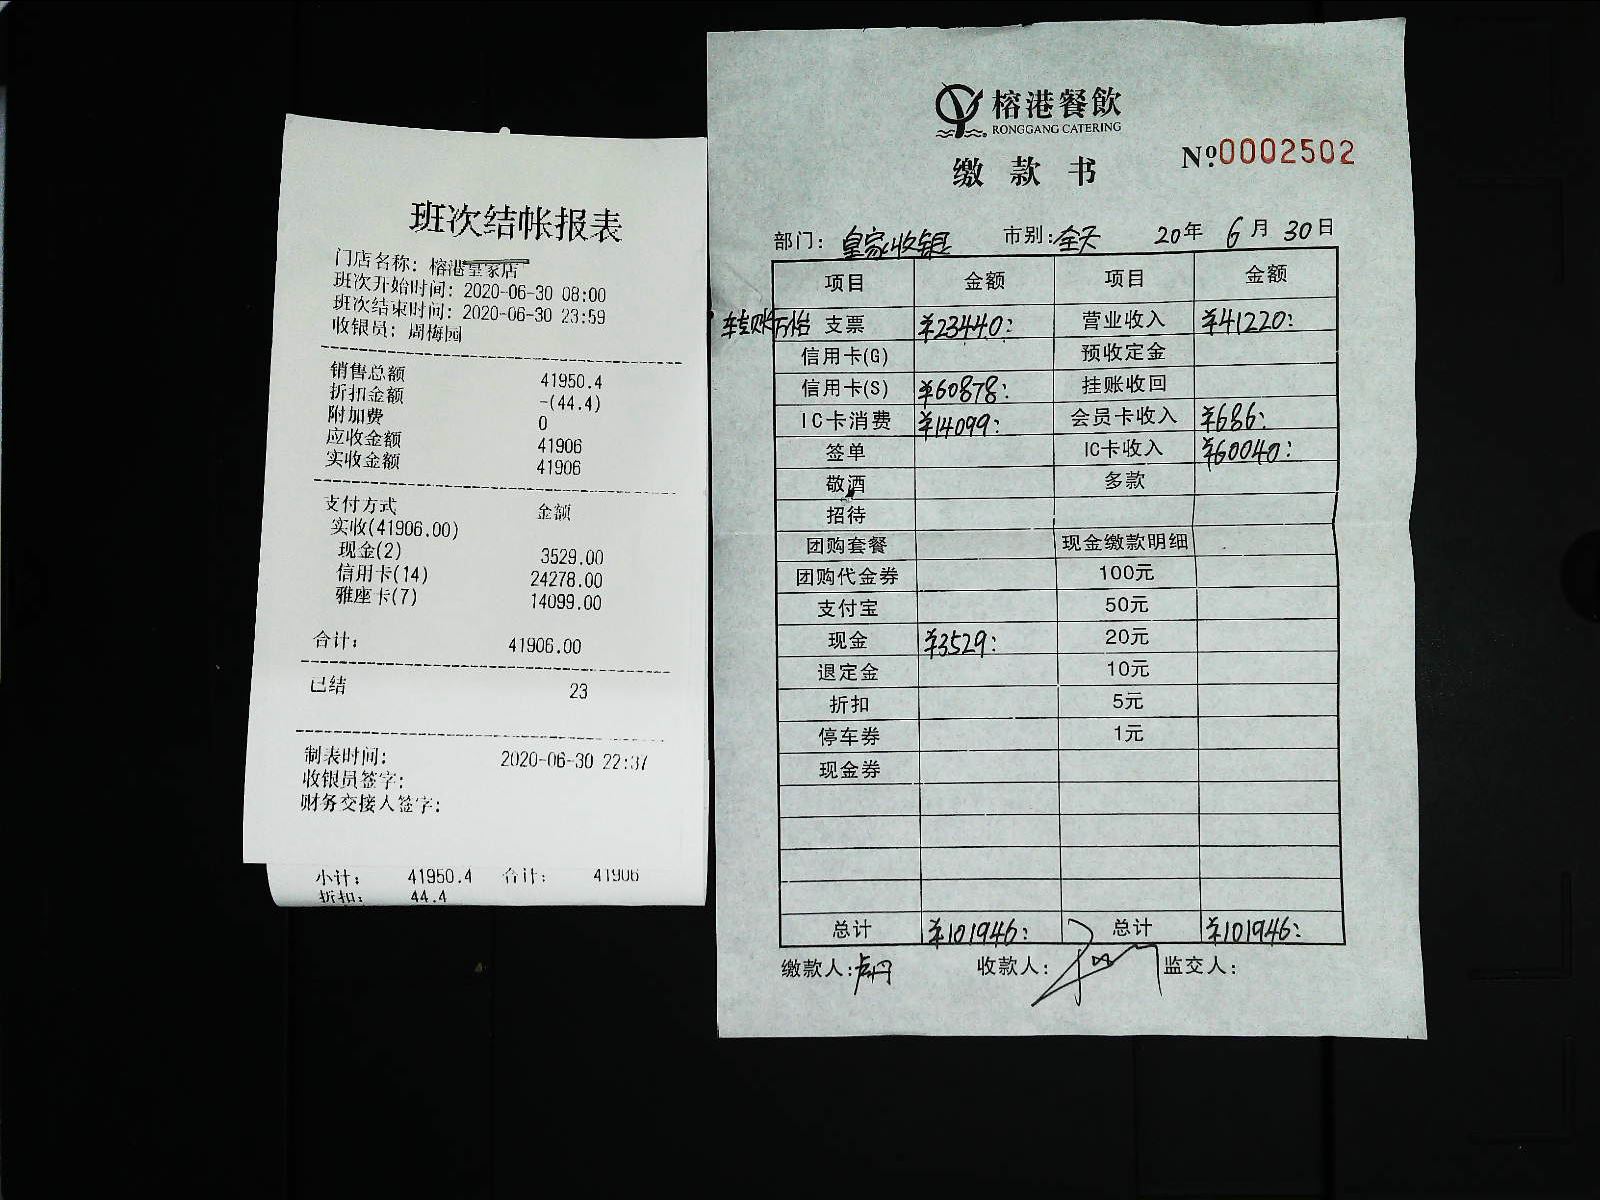 班次结帐报表
门店名称: 榕港皇家店
班次开始时间: 2020-06-30 08:00
班次结束时间: 2020-06-30 23:59
收银员: 周梅园
销售总额 41950.4
折扣金额 -(44.4)
附加费 0
应收金额 41906
实收金额 41906
支付方式 金额
实收(41906.00)
现金(2) 3529.00
信用卡(14) 24278.00
雅座卡(7) 14099.00
合计: 41906.00
已结 23
制表时间: 2020-06-30 22:37
收银员签字:
财务交接人签字:
小计: 41950.4 合计: 41906
折扣: 44.4
榕港餐飲
RONGGANG CATERING
缴款书 No.0002502
部门: 皇家收银 市别: 全天 20年 6月 30日
项目 金额 项目 金额
支票 ¥23440: 营业收入 ¥41220:
信用卡(G) 预收定金
信用卡(S) ¥60878: 挂账收回
IC卡消费 ¥14099: 会员卡收入 ¥686:
签单 IC卡收入 ¥60040:
敬酒 多款
招待
团购套餐 现金缴款明细
团购代金券 100元
支付宝 50元
现金 ¥3529: 20元
退定金 10元
折扣 5元
停车券 1元
现金券
总计 ¥101946: 总计 ¥101946:
缴款人: 卢丹 收款人: 监交人: